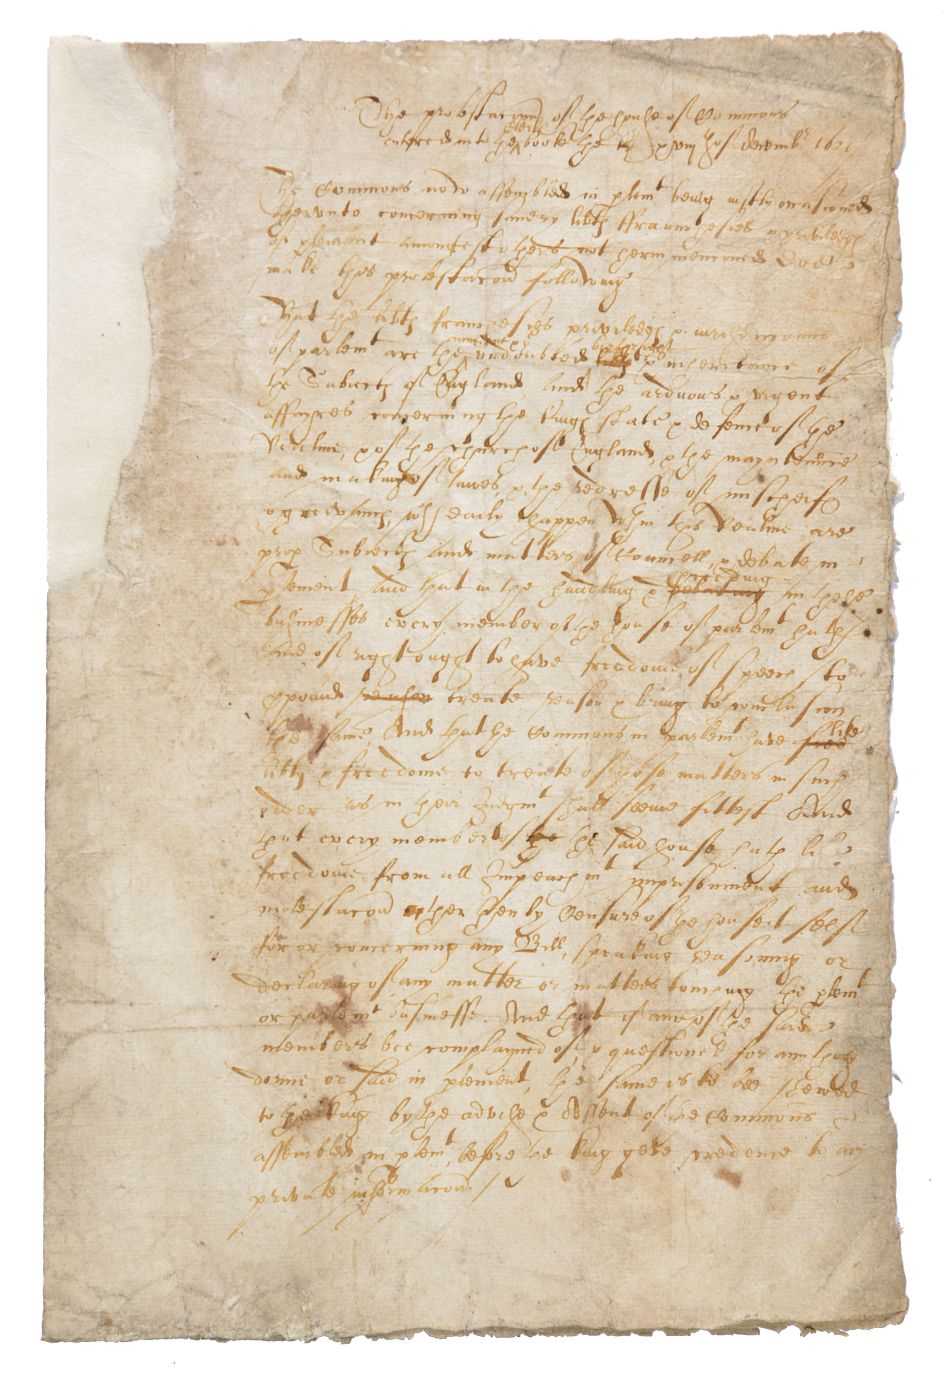 The protestacion of the house of Commons
entred into the clerks booke the xviij of decemb 1621
The Commons now assembled in plemt being iustly occasioned
therunto concerning sundry libtes ffraunchesies & priviledges
of pleament amongest others not herin mencioned doe
make this protestacon following
That the libtes franchesies priviledges & iurisdiccions
of parlemt are the auncient & undoubted birthright & inheritance of
the Subiects of England And the arduous & urgent
affayres concerning the king state & defence of the
Realme, & of the church of England, & the mayntenance
and making of lawes, & the redresse of mischeifs
& grevances wch dayly happen wthin this Realme are
prop Subiects and matters of Councell, & debate in
plement, And that in the handling & proceeding in those
businesses every member of the house of parlemt hath
and of right ought to have freedome of speech to
ppound treate reason & bring to conclusion
the same, And that the Commons in parlemt have like
libty & freedome to treate of those matters in such
order as in their Iudgmt shall seeme fittest And
that every member of the said house hath like
freedome from all Impeachmt imprisonment and
molestacon other then by Censure of the house it self
for or concerning any Bill, speaking reasoning or
declaring of any matter or matters touching the plemt
or parlemt businesse. And that if any of the said
members bee complayned of, & questioned for any thing
donne or said in plement, the same is to bee shewed
to the king by the advise & assent of the Commons
assembled in plemt, before the king geve credence to any
private informacon